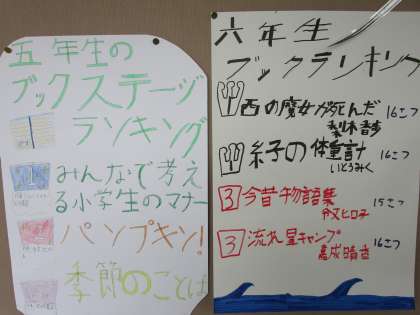 五年生の
ブックステージ
ランキング
みんなで考え
る小学生のマナー
パンプキン!
季節のことば
六年生
ブックランキング
西の魔女が死んだ 16さつ
梨木香歩
糸子の体重計 16さつ
いとうみく
3 今昔物語集 15さつ
令丈ヒロ子
3 流れ星キャンプ 16さつ
嘉成晴香